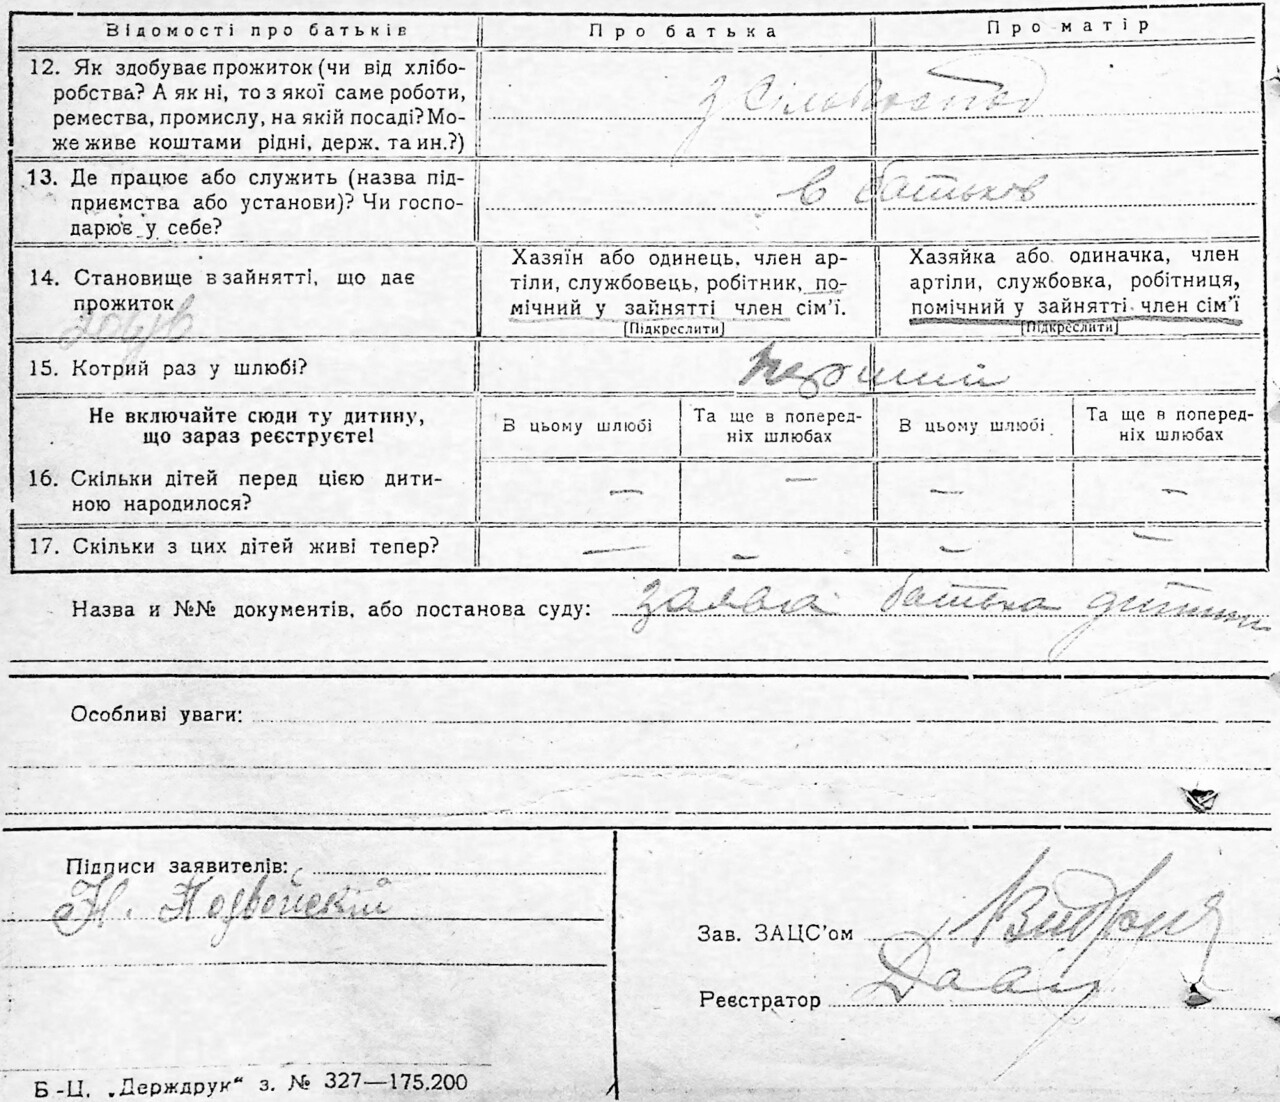 Відомості про батьків
Про батька
Про матір
12. Як здобуває прожиток (чи від хлібо-
робства? А як ні, то з якої саме роботи,
ремества, промислу, на якій посаді? Мо-
же живе коштами рідні, держ. та ин.?)
з
13. Де працює або служить (назва під-
приємства або установи)? Чи госпо-
дарює у себе?
в батьков
14. Становище в зайнятті, що дає
прожиток
Хазяїн або одинець, член ар-
тіли, службовець, робітник, по-
мічний у зайнятті член сім'ї.
[Підкреслити]
Хазяйка або одиначка, член
артіли, службовка, робітниця,
помічний у зайнятті член сім'ї
[Підкреслити]
15. Котрий раз у шлюбі?
первший
Не включайте сюди ту дитину,
що зараз реєструєте!
В цьому шлюбі
Та ще в поперед-
ніх шлюбах
В цьому шлюбі
Та ще в поперед-
ніх шлюбах
16. Скільки дітей перед цією дити-
ною народилося?
— — — —
17. Скільки з цих дітей живі тепер?
— — — —
Назва и №№ документів, або постанова суду: заява батька дитини
Особливі уваги:
Підписи заявителів:
Н. Подвойскій
Зав. ЗАЦС'ом
Реєстратор
Б-Ц. „Держдрук“ з. № 327—175.200